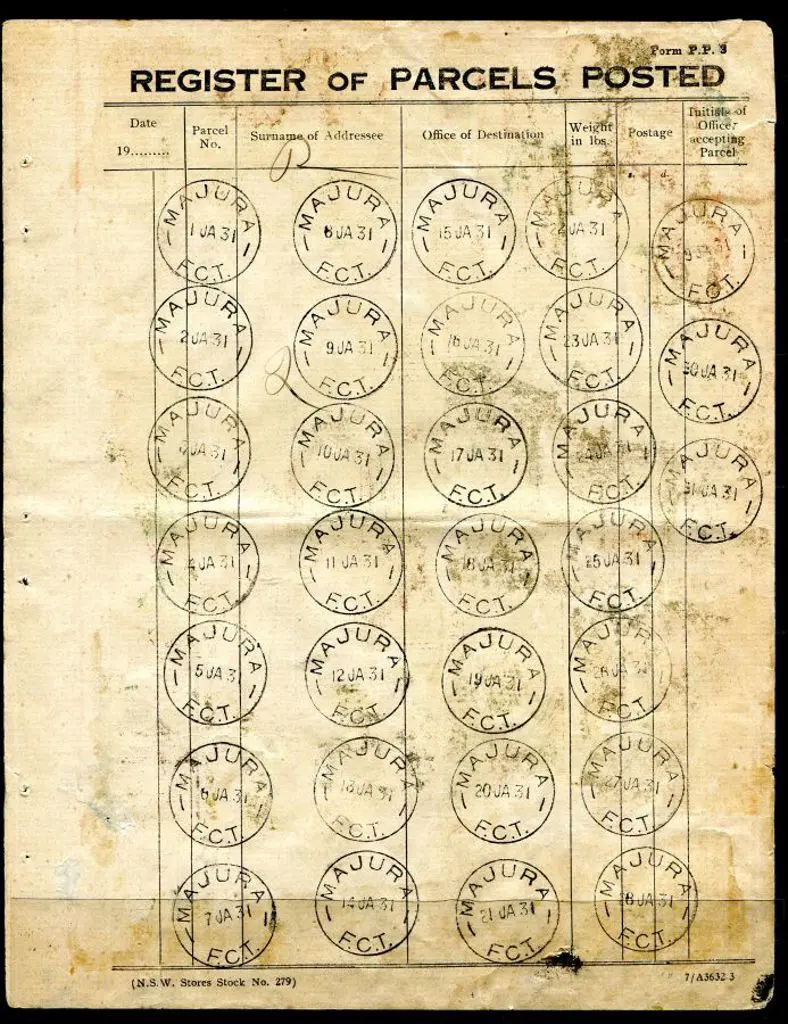 Form P.P. 3
REGISTER OF PARCELS POSTED
Date
19.........
Parcel
No.
Surname of Addressee
Office of Destination
Weight
in lbs.
Postage
Initials of
Officer
accepting
Parcel
s. d.
MAJURA
1 JA 31
F.C.T.
MAJURA
2 JA 31
F.C.T.
MAJURA
JA 31
F.C.T.
MAJURA
4 JA 31
F.C.T.
MAJURA
5 JA 3
F.C.T.
MAJURA
6 JA 31
F.C.T.
MAJURA
7 JA 31
F.C.T.
MAJURA
8 JA 31
F.C.T.
MAJURA
9 JA 31
F.C.T.
MAJURA
10 JA 31
F.C.T.
MAJURA
11 JA 31
F.C.T.
MAJURA
12 JA 31
F.C.T.
MAJURA
13 JA 31
F.C.T.
MAJURA
14 JA 31
F.C.T.
MAJURA
15 JA 31
F.C.T.
MAJURA
16 JA 31
F.C.T.
MAJURA
17 JA 31
F.C.T.
MAJURA
18 JA 31
F.C.T.
MAJURA
19 JA 31
F.C.T.
MAJURA
20 JA 31
F.C.T.
MAJURA
21 JA 31
F.C.T.
MAJURA
22 JA 31
F.C.T.
MAJURA
23 JA 31
F.C.T.
MAJURA
24 JA 31
F.C.T.
MAJURA
25 JA 31
F.C.T.
MAJURA
26 JA 31
F.C.T.
MAJURA
27 JA 31
F.C.T.
MAJURA
28 JA 31
F.C.T.
MAJURA
29 JA 31
F.C.T.
MAJURA
30 JA 31
F.C.T.
MAJURA
31 JA 31
F.C.T.
(N.S.W. Stores Stock No. 279)
7/A3632 3